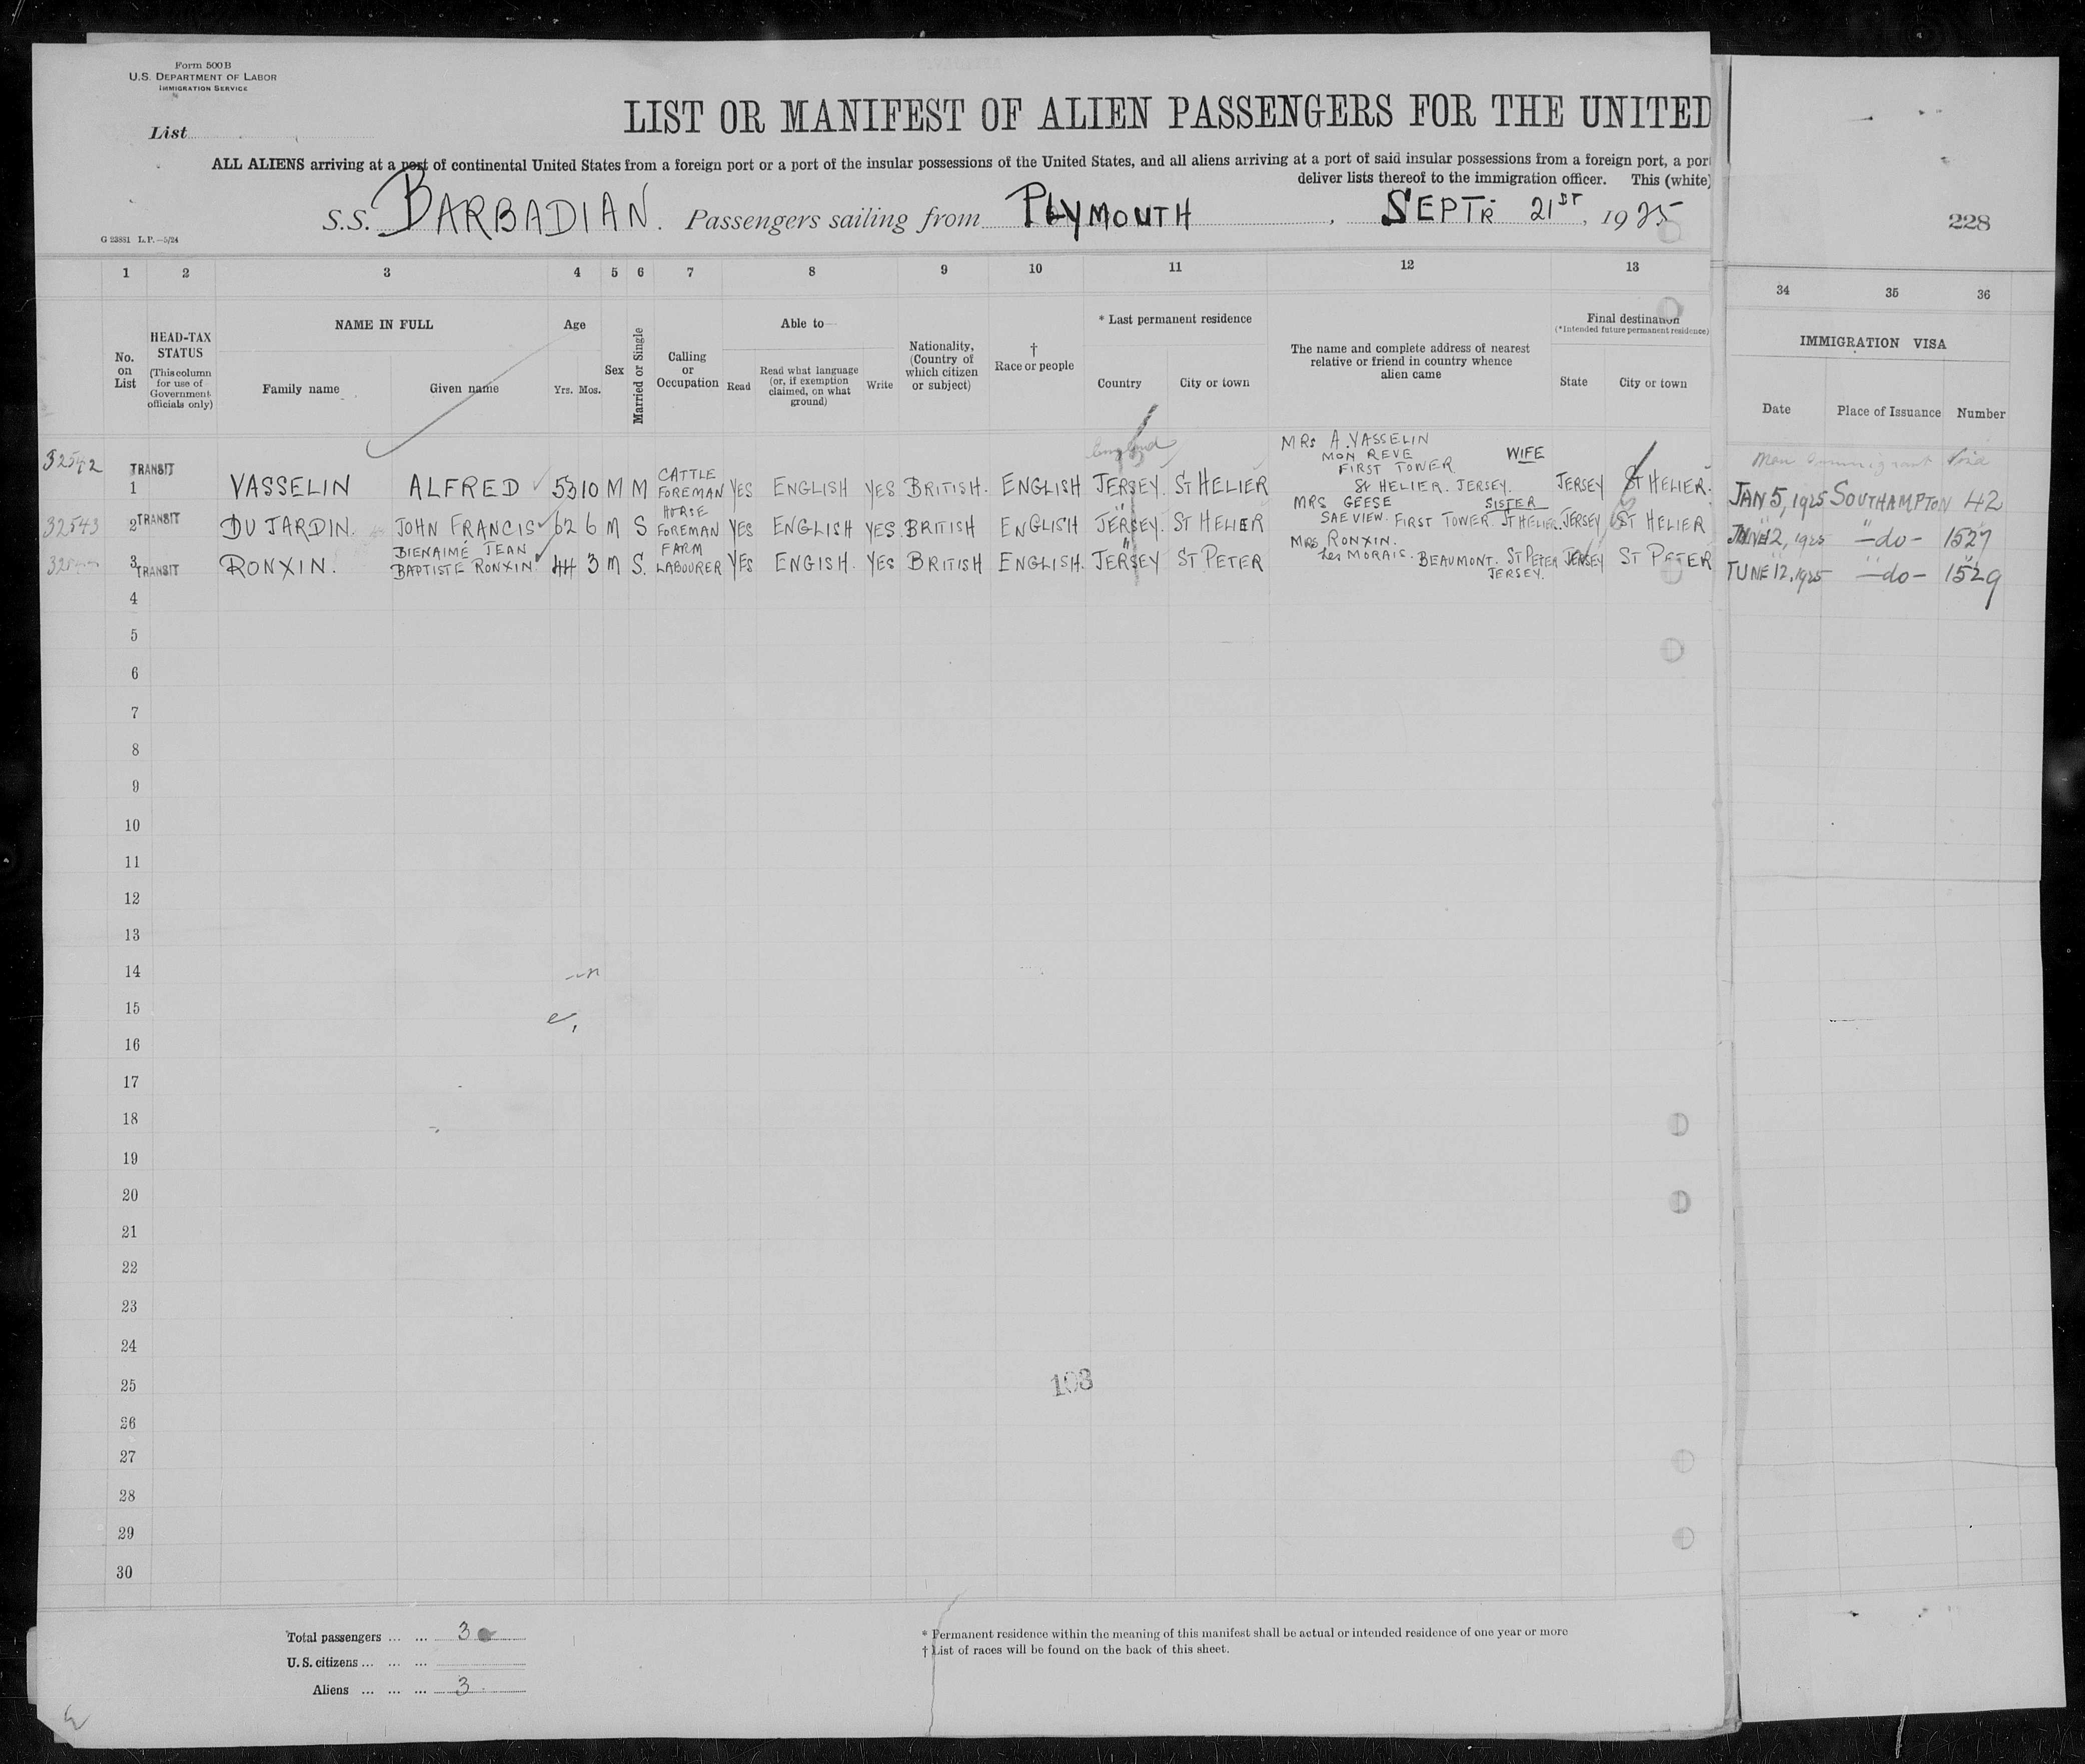 Form 500B
U.S. DEPARTMENT OF LABOR
IMMIGRATION SERVICE
List
LIST OR MANIFEST OF ALIEN PASSENGERS FOR THE UNITED
ALL ALIENS arriving at a port of continental United States from a foreign port or a port of the insular possessions of the United States, and all aliens arriving at a port of said insular possessions from a foreign port, a por
deliver lists thereof to the immigration officer. This (white)
S.S. BARBADIAN. Passengers sailing from PLYMOUTH, SEPTR 21ST, 1925
G 23881 L.P.—5/24
228
1 2 3 4 5 6 7 8 9 10 11 12 13 34 35 36
No. on List
HEAD-TAX STATUS
(This column for use of Government officials only)
NAME IN FULL
Family name Given name
Age
Yrs. Mos.
Sex
Married or Single
Calling or Occupation
Able to—
Read
Read what language (or, if exemption claimed, on what ground)
Write
Nationality, (Country of which citizen or subject)
† Race or people
* Last permanent residence
Country City or town
The name and complete address of nearest relative or friend in country whence alien came
Final destination
(*Intended future permanent residence)
State City or town
IMMIGRATION VISA
Date Place of Issuance Number
England
32542 TRANSIT 1 VASSELIN ALFRED 53 10 M M CATTLE FOREMAN YES ENGLISH YES BRITISH. ENGLISH JERSEY. ST HELIER MRS A. VASSELIN WIFE MON REVE FIRST TOWER. St HELIER. JERSEY. JERSEY ST HELIER. JAN 5, 1925 SOUTHAMPTON 42
32543 2 TRANSIT DU JARDIN. JOHN FRANCIS 62 6 M S HORSE FOREMAN YES ENGLISH YES. BRITISH ENGLISH JERSEY. ST HELIER MRS GEESE SISTER SAEVIEW. FIRST TOWER. ST HELIER. JERSEY ST HELIER JUNE 12, 1925 —do— 1527
3 TRANSIT RONXIN. BIENAIMÉ JEAN BAPTISTE RONXIN 44 3 M S. FARM LABOURER YES ENGISH. YES BRITISH ENGLISH. JERSEY ST PETER MRS RONXIN. Les MORAIS. BEAUMONT. ST PETER JERSEY. JERSEY ST PETER JUNE 12, 1925 —do— 1529
4
5
6
7
8
9
10
11
12
13
14
15
16
17
18
19
20
21
22
23
24
25
103
26
27
28
29
30
Total passengers ... ... 3
U.S. citizens ... ... ...
Aliens ... ... ... 3
* Permanent residence within the meaning of this manifest shall be actual or intended residence of one year or more
† List of races will be found on the back of this sheet.